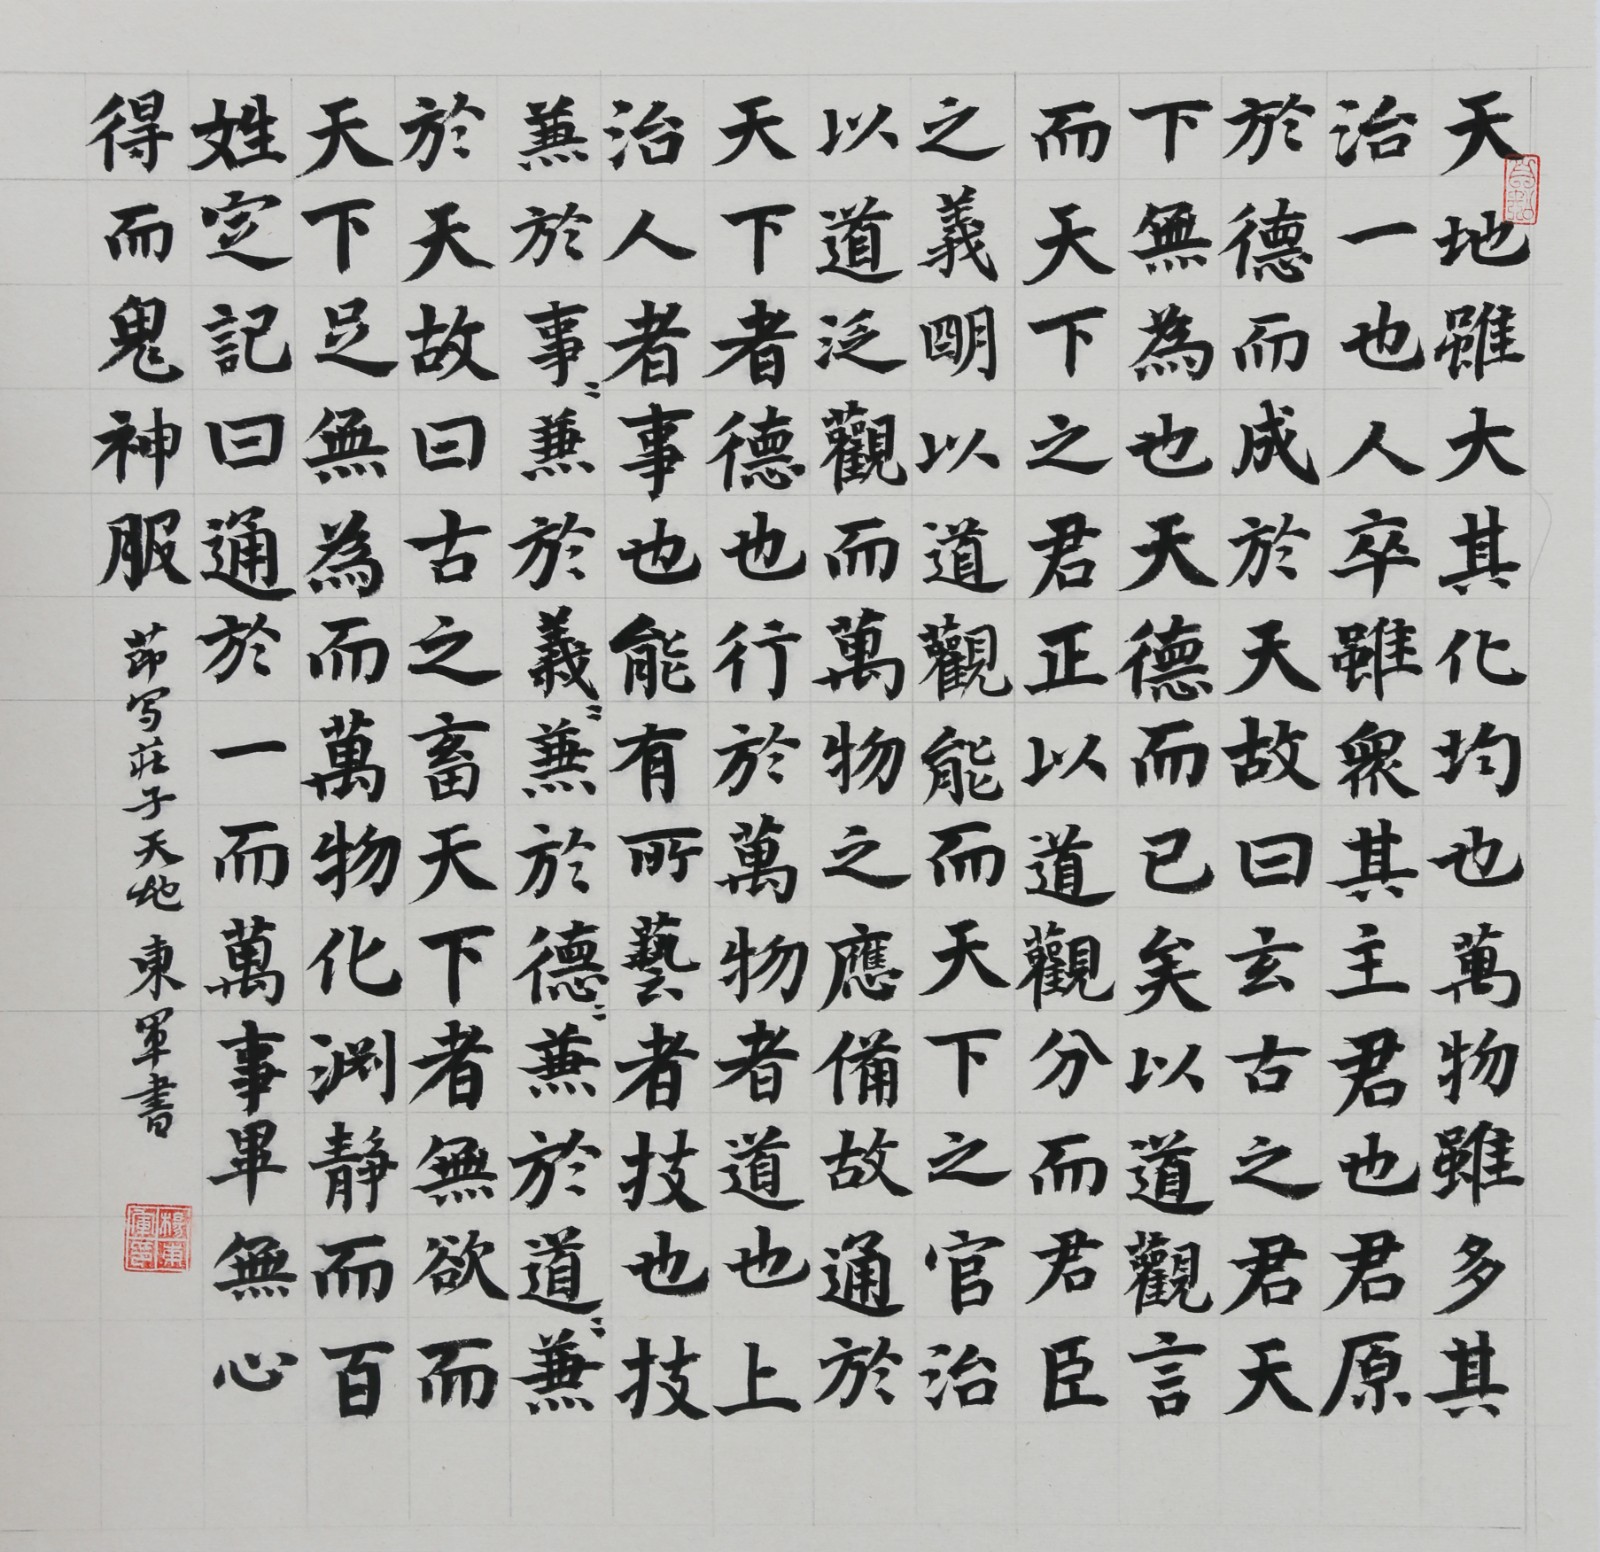 天地雖大其化均也萬物雖多其
治一也人卒雖衆其主君也君原
於德而成於天故曰玄古之君天
下無為也天德而已矣以道觀言
而天下之君正以道觀分而君臣
之義明以道觀能而天下之官治
以道泛觀而萬物之應備故通於
天下者德也行於萬物者道也上
治人者事也能有所藝者技也技
兼於事〻兼於義〻兼於德〻兼於道〻兼
於天故曰古之畜天下者無欲而
天下足無為而萬物化淵靜而百
姓定記曰通於一而萬事畢無心
得而鬼神服
節写莊子天地 東軍書
楊東軍印